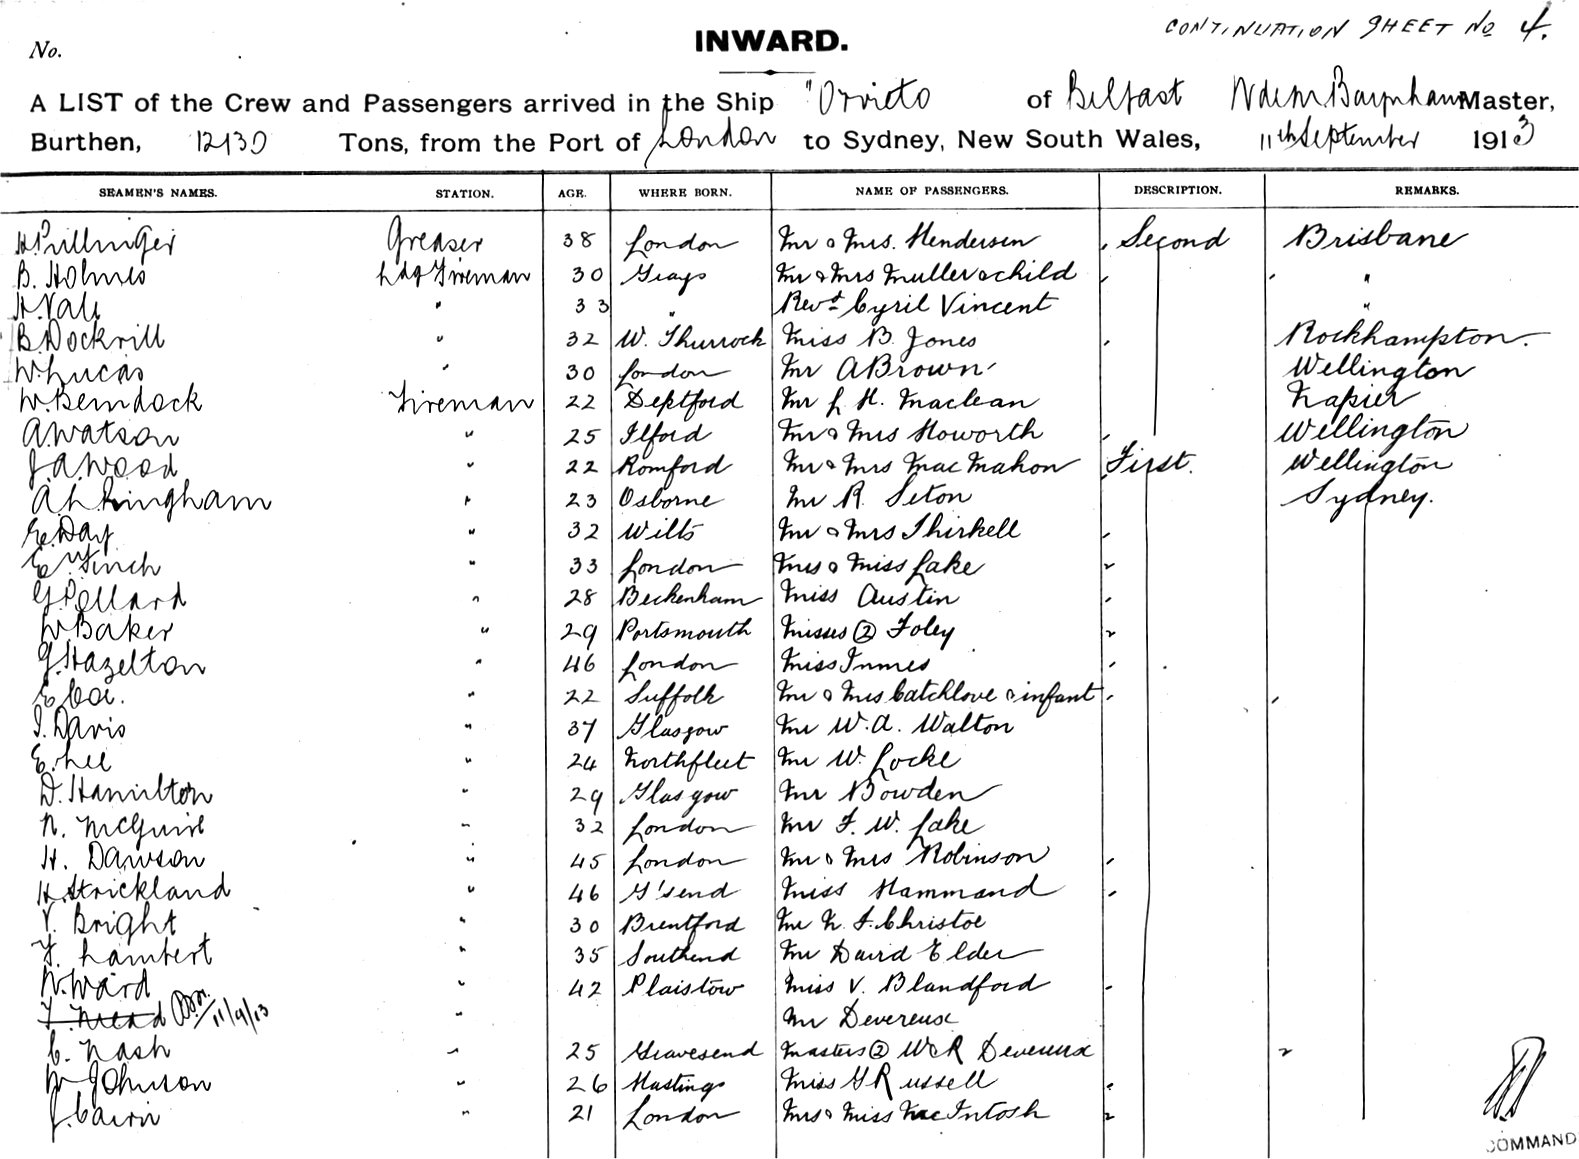 CONTINUATION SHEET No 4.
No.
INWARD.
A LIST of the Crew and Passengers arrived in the Ship "Orvieto of Belfast Master,
Burthen, 12130 Tons, from the Port of London to Sydney, New South Wales, 11th September 1913
SEAMEN'S NAMES. STATION. AGE. WHERE BORN. NAME OF PASSENGERS. DESCRIPTION. REMARKS.
H. Pullinger Greaser 38 London Mr & Mrs. Henderson Second Brisbane
B. Holmes Ldg Fireman 30 Grays Mr & Mrs Muller & child "
H. Vale " 33 " Revd Cyril Vincent "
B. Dockrill " 32 W. Thurrock Miss B. Jones Rockhampton.
W. Lucas " 30 London Mr A Brown Wellington
W. Berndock Fireman 22 Deptford Mr L. H. Maclean Napier
A. Watson " 25 Ilford Mr & Mrs Howorth Wellington
J. A. Wood " 22 Romford Mr & Mrs MacMahon First. Wellington
A. L. Kingham " 23 Osborne Mr R. Seton Sydney.
E. Day " 32 Wilts Mr & Mrs Thirkell
E. Finch " 33 London Mrs & Miss Lake
G. Pollard " 28 Beckenham Miss Austin
W. Baker " 29 Portsmouth Misses (2) Foley
G. Hazelton " 46 London Miss Innes
E. Cox. " 22 Suffolk Mr & Mrs Catchlove & infant
I. Davis " 37 Glasgow Mr W. A. Walton
E. Lee " 24 Northfleet Mr W. Locke
D. Hamilton " 29 Glasgow Mr Bowden
N. McGuire " 32 London Mr F. W. Lake
H. Dawson " 45 London Mr & Mrs Robinson
H. Strickland " 46 G'send Miss Hammand
V. Bright " 30 Brentford Mr N. S. Christoe
F. Lambert " 35 Southend Mr David Elder
W. Ward " 42 Plaistow Miss V. Blandford
F. Mead 11/9/13 " Mr Devereux
C. Nash " 25 Gravesend Masters (2) W & R Devereux
W Johnson " 26 Hastings Miss G Russell
J. Cairn " 21 London Mrs & Miss MacIntosh
COMMAND